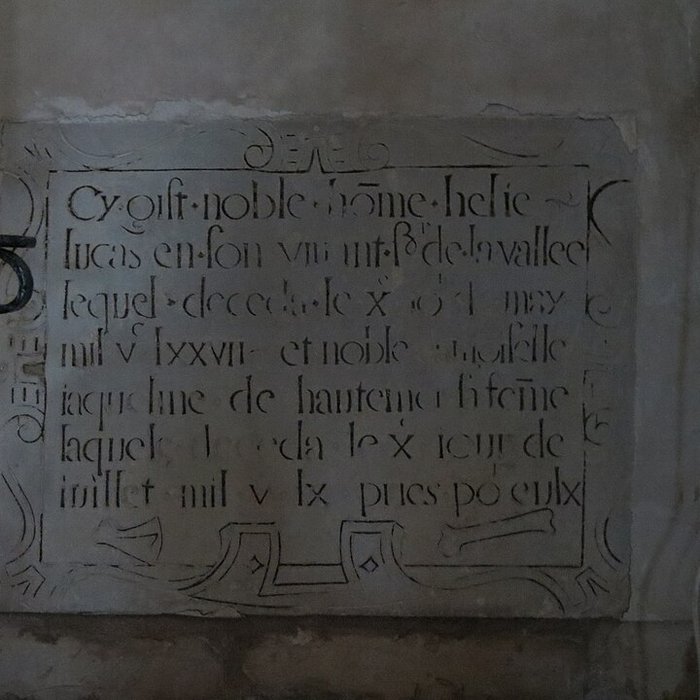 Cy·gist·noble·hōme·helie
lucas en·son vivant·sʳ de·la vallee
lequel·deceda·le xᵉ io de may
mil vᶜ lxxvii et noble damoiselle
iaqueline de hautemer sa fēme
laquele deceda le x iour de
iuillet mil v lx pries po eulx